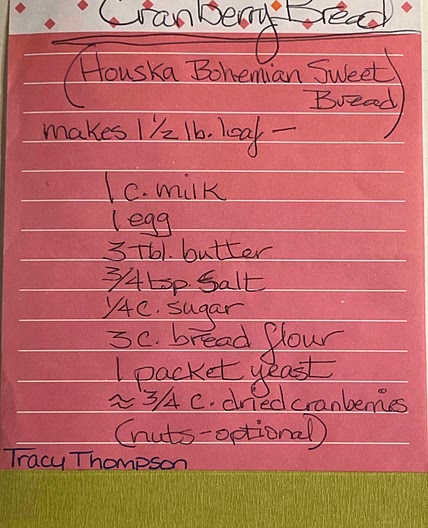 Cranberry Bread
(Houska Bohemian Sweet
Bread)
makes 1 1/2 lb. loaf -
1 c. milk
1 egg
3 Tbl. butter
3/4 tsp. Salt
1/4 c. sugar
3 c. bread flour
1 packet yeast
≈ 3/4 c. dried cranberries
(nuts-optional)
Tracy Thompson